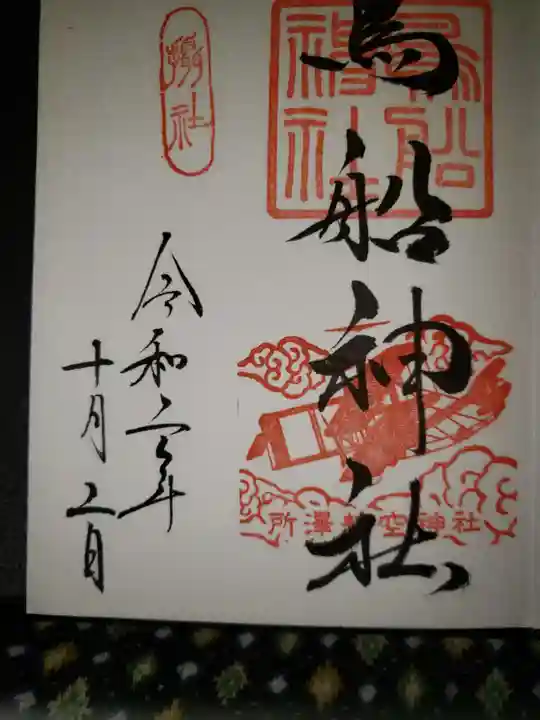 鳥船神社
鳥船神社
所澤航空神社
攝社
令和二年
十月二日